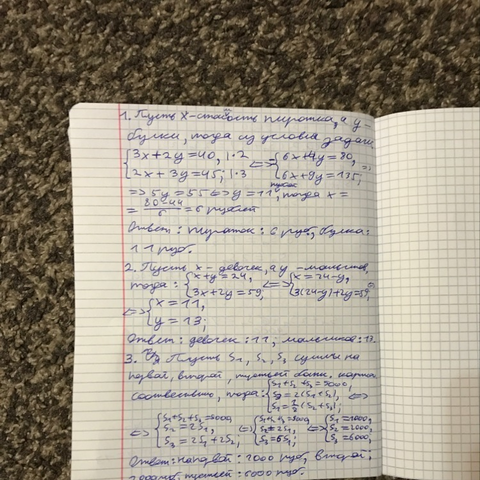 1. Пусть x - стоимость пирожка, а y -
булки, тогда из условия задачи
{3x + 2y = 40, | · 2 <=> {6x + 4y = 80, =>
{2x + 3y = 45; | · 3 {6x + 9y = 135;
=> 5y = 55 <=> y = 11 рублей, тогда x =
= (80-44)/6 = 6 рублей
Ответ: пирожок: 6 руб, булка:
11 руб.
2. Пусть x - девочек, а y - мальчиков,
тогда: {x + y = 24, <=> {x = 24 - y,
{3x + 2y = 59; {3(24-y) + 2y = 59;
<=> {x = 11,
{y = 13;
Ответ: девочек: 11, мальчиков: 13.
3. Пусть S1, S2, S3 суммы на
первой, второй, третьей банк. картах
соответственно, тогда: {S1 + S2 + S3 = 9000,
{S3 = 2(S1 + S2), <=>
<=> {S1 + S2 + S3 = 9000, <=> {S1 + S2 + S3 = 9000, <=> {S1 = 1000,
{S2 = 2S1, {S2 = 2S1, {S2 = 2000,
{S3 = 2S1 + 2S2; {S3 = 6S1; {S3 = 6000;
Ответ: на первой: 1000 руб, второй:
2000 руб, третьей: 6000 руб.